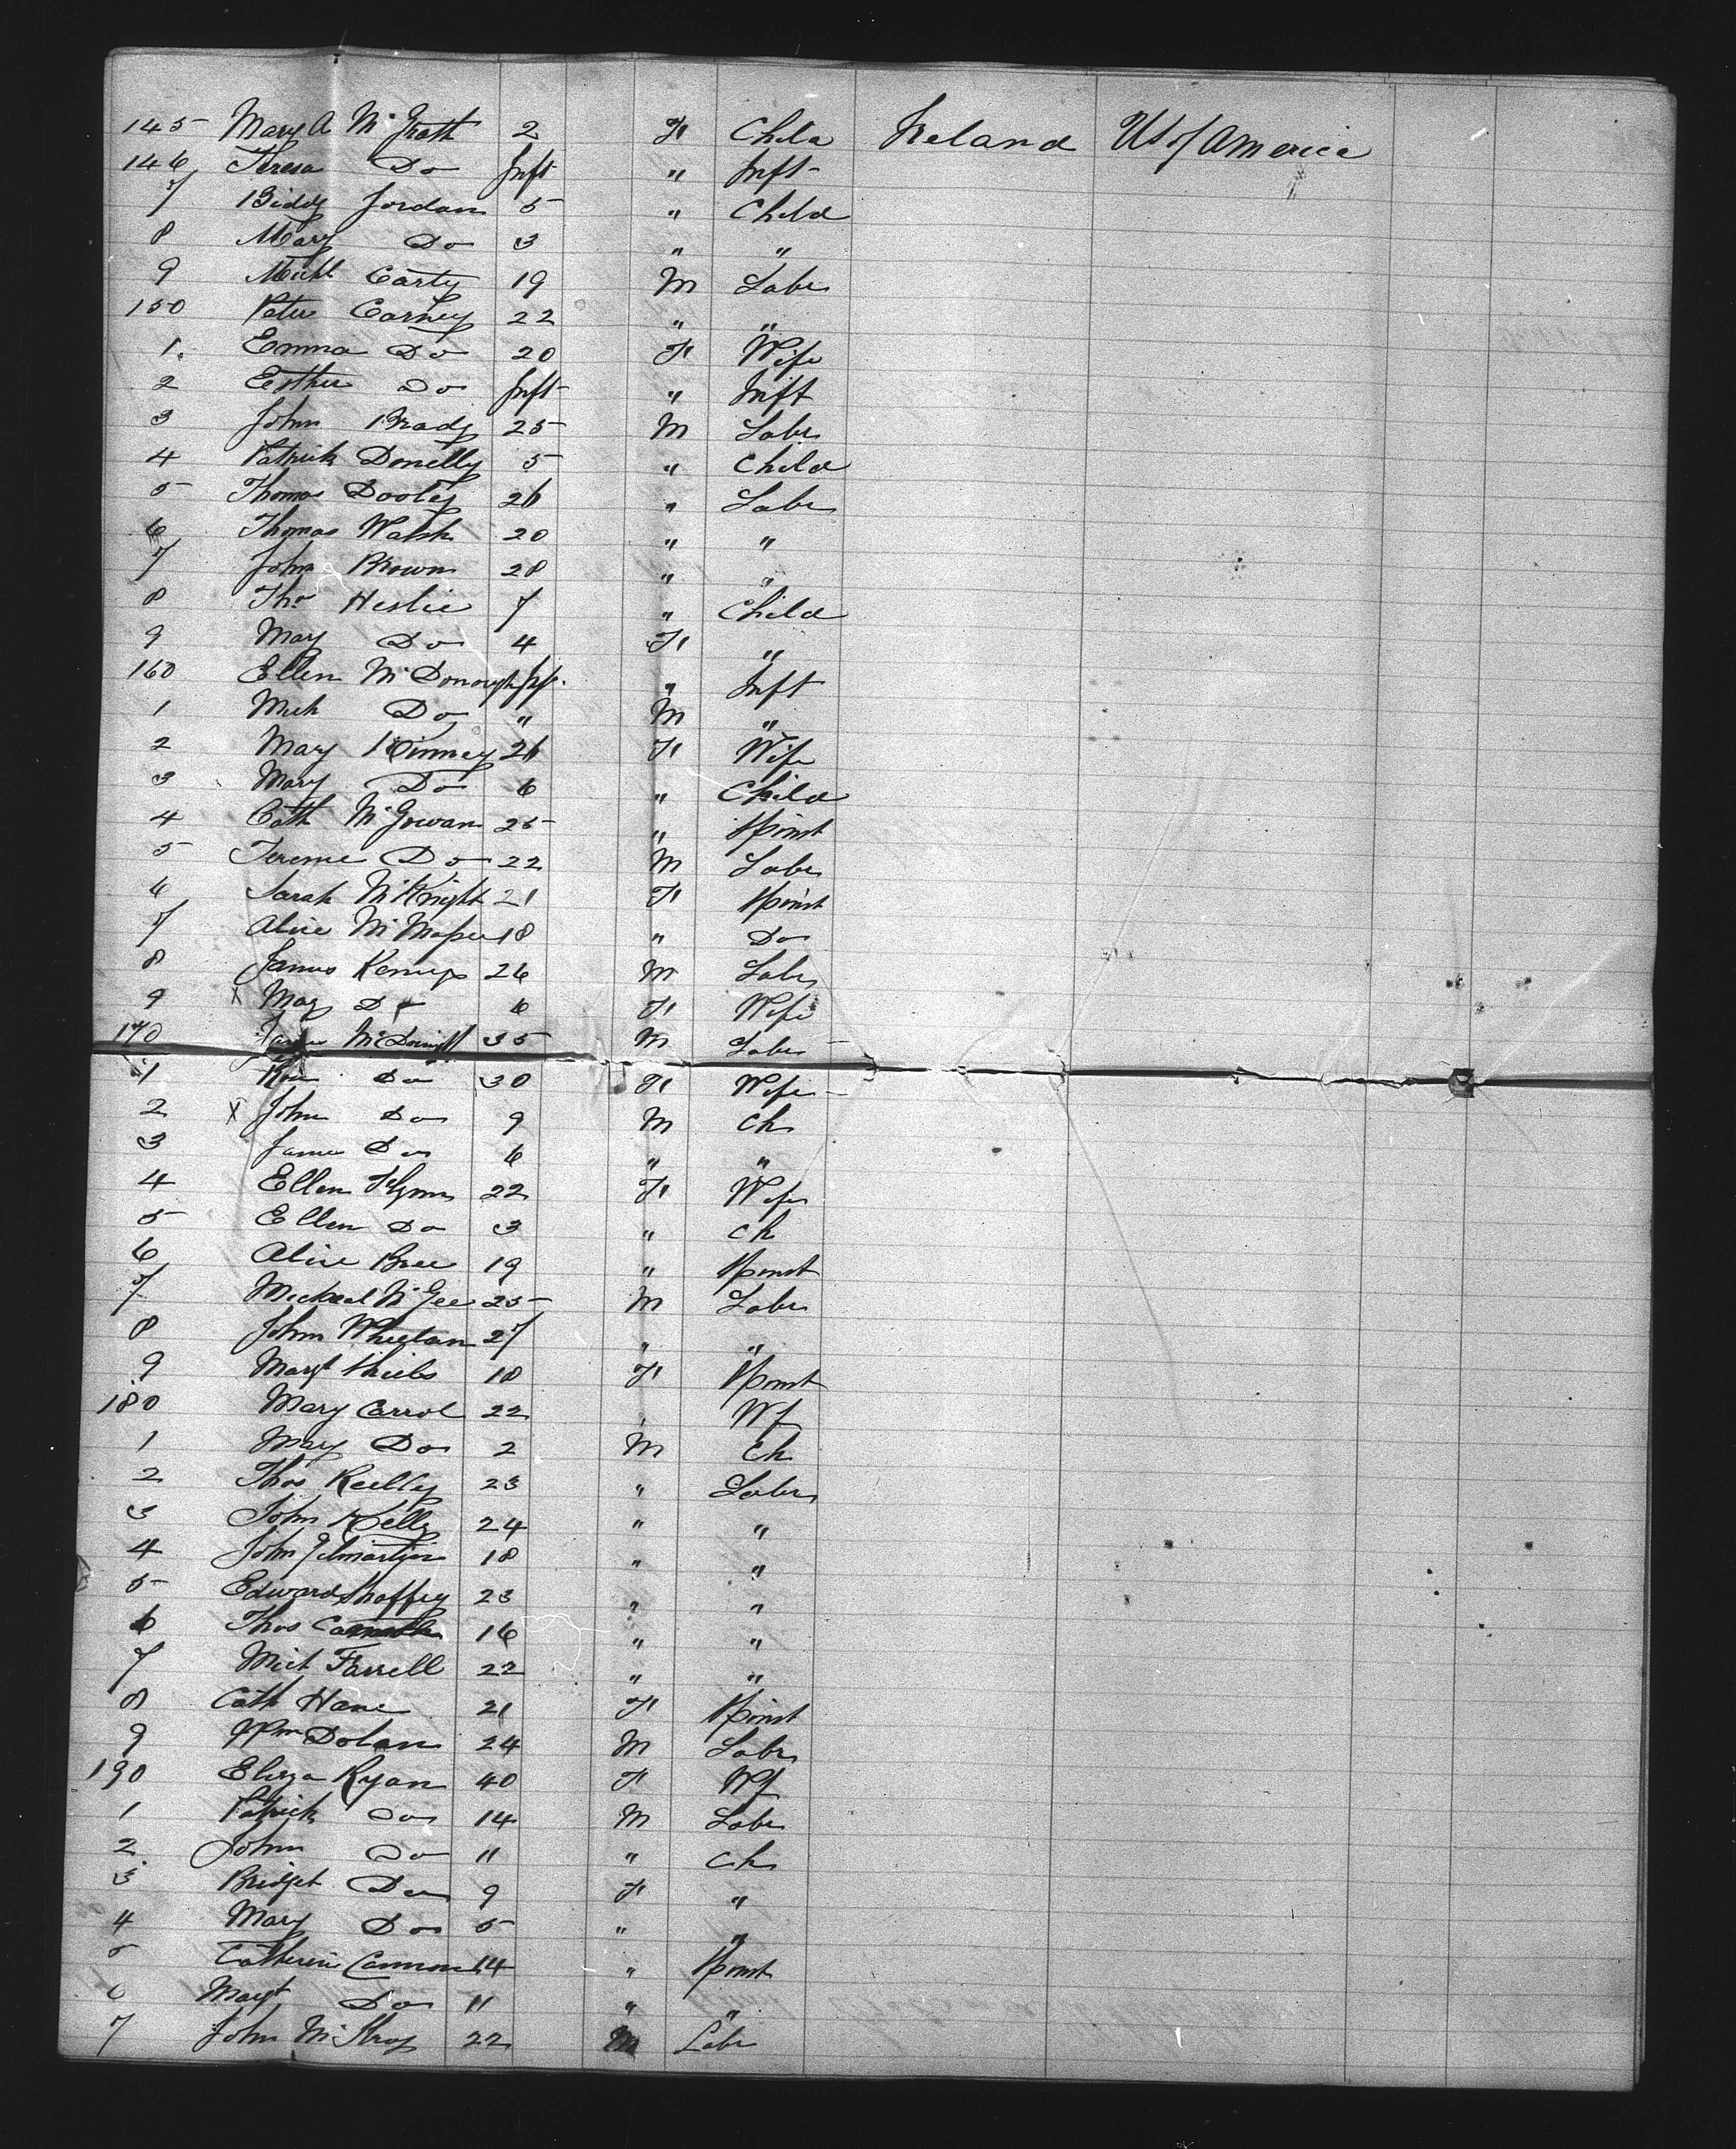 145 Mary A McGrath 2 F Child Ireland US of America
146 Teresa Do Inft " Inft
7 Biddy Jordan 5 " Child
8 Mary Do 3 " "
9 Michl Carty 19 M Labr
150 Peter Carney 22 " "
1 Emma Do 20 F Wife
2 Esther Do Inft " Inft
3 John Brady 25 M Labr
4 Patrick Donelly 5 " Child
5 Thomas Dooley 26 " Labr
6 Thomas Walsh 20 " "
7 John Brown 28 " "
8 Thos Heslie 7 " Child
9 Mary Do 4 F "
160 Ellen McDonough Inft " Inft
1 Mich Do " M "
2 Mary Kinney 26 F Wife
3 Mary Do 6 " Child
4 Cath McGowan 25 " Spinst
5 Do 22 M Labr
6 Sarah McKnight 21 F Spinst
7 Alice 18 " Do
8 James 26 M Labr
9 x Mary Do 6 F Wife
170 35 M Labr
1 Rose Do 30 F Wife
2 x John Do 9 M Ch
3 James Do 6 " "
4 Ellen Flynn 22 F Wife
5 Ellen Do 3 " Ch
6 Alice Bree 19 " Spinst
7 Micheal McGee 25 M Labr
8 John Wheelan 27 " "
9 Margt 18 F Spinst
180 Mary Carrol 22 " Wf
1 Mary Do 2 M Ch
2 Thos Reilly 23 " Labr
3 John Kelly 24 " "
4 John Gilmartin 18 " "
5 Edward 23 " "
6 Thos 16 " "
7 Mict Farrell 22 " "
8 Cath Hane 21 F Spinst
9 Wm Dolan 24 M Labr
190 Eliza Ryan 40 F Wf
1 Patrick Do 14 M Labr
2 John Do 11 " Ch
3 Bridget Do 9 F "
4 Mary Do 5 " "
5 Catherine Cannon 14 " Spinst
6 Margt Do 11 " "
7 John 22 M Labr